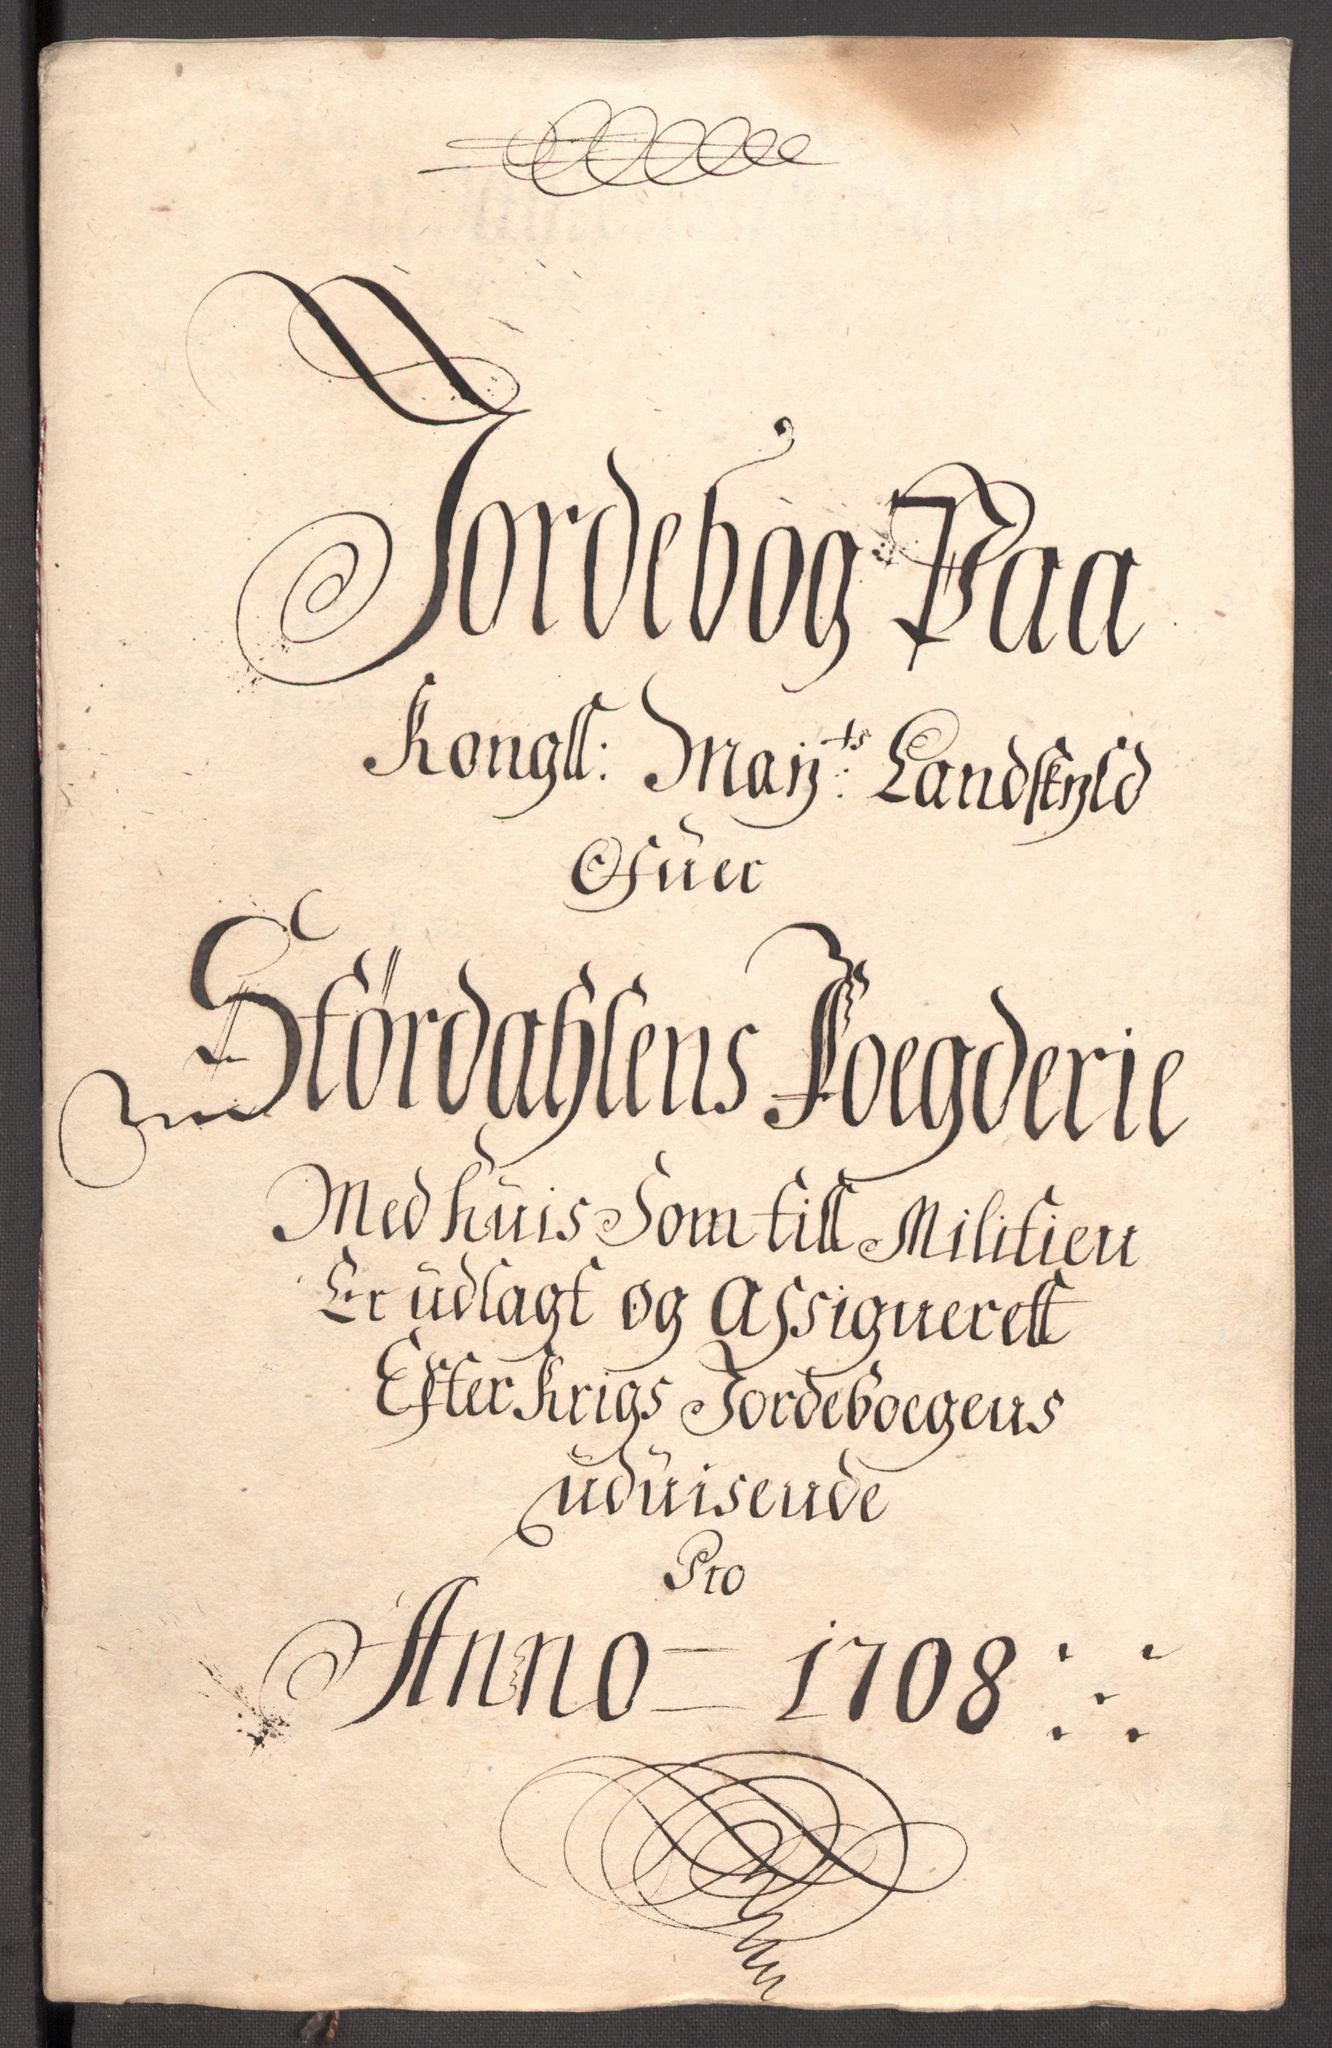 Jordebog Paa
Kongll: Maÿ:ts Landskÿld
Ofuer
Størdahlens Foegderie
Med huis Som till Militien
Er üdlagt og Assigneret
Efter Krigs Jordeboegens
üdüisende
Pro
Anno = 1708